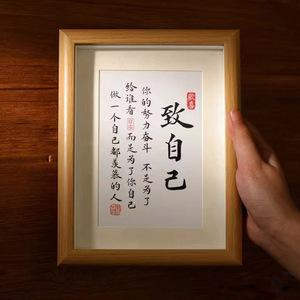 致自己
你的努力奋斗 不是为了
给谁看 而是为了你自己
做一个自己都羡慕的人